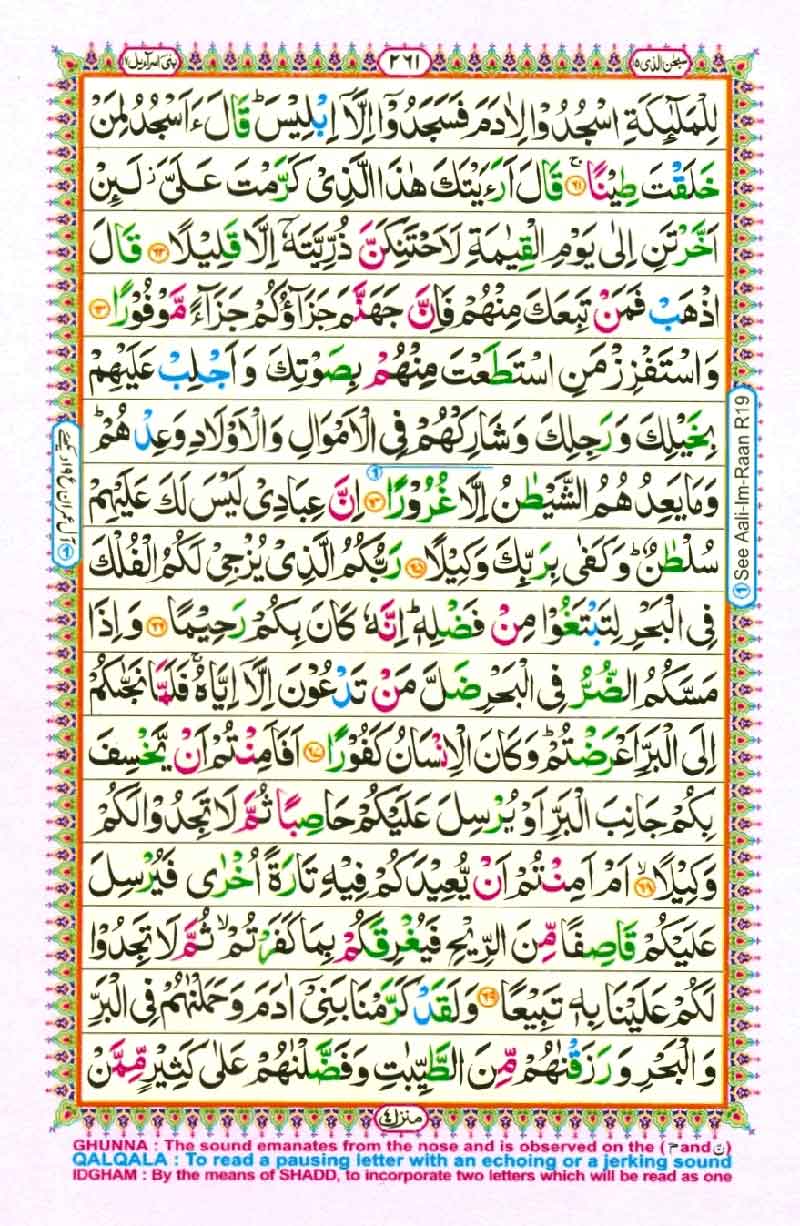 بنی اسرآءیل ۱۷
۳۶۱
سبحٰن الذی ۱۵
لِلْمَلٰٓئِكَةِ اسْجُدُوْا لِاٰدَمَ فَسَجَدُوْۤا اِلَّاۤ اِبْلِیْسَ ؕ قَالَ ءَاَسْجُدُ لِمَنْ
خَلَقْتَ طِیْنًا ۚ ۶۱ قَالَ اَرَءَیْتَكَ هٰذَا الَّذِیْ كَرَّمْتَ عَلَیَّ ؗ لَىِٕنْ
اَخَّرْتَنِ اِلٰی یَوْمِ الْقِیٰمَةِ لَاَحْتَنِكَنَّ ذُرِّیَّتَهٗۤ اِلَّا قَلِیْلًا ۶۲ قَالَ
اذْهَبْ فَمَنْ تَبِعَكَ مِنْهُمْ فَاِنَّ جَهَنَّمَ جَزَآؤُكُمْ جَزَآءً مَّوْفُوْرًا ۶۳
وَاسْتَفْزِزْ مَنِ اسْتَطَعْتَ مِنْهُمْ بِصَوْتِكَ وَاَجْلِبْ عَلَیْهِمْ
بِخَیْلِكَ وَرَجِلِكَ وَشَارِكْهُمْ فِی الْاَمْوَالِ وَالْاَوْلَادِ وَعِدْهُمْ ؕ
وَمَا یَعِدُهُمُ الشَّیْطٰنُ اِلَّا غُرُوْرًا ۶۴ اِنَّ عِبَادِیْ لَیْسَ لَكَ عَلَیْهِمْ
سُلْطٰنٌ ؕ وَكَفٰی بِرَبِّكَ وَكِیْلًا ۶۵ رَبُّكُمُ الَّذِیْ یُزْجِیْ لَكُمُ الْفُلْكَ
فِی الْبَحْرِ لِتَبْتَغُوْا مِنْ فَضْلِهٖ ؕ اِنَّهٗ كَانَ بِكُمْ رَحِیْمًا ۶۶ وَاِذَا
مَسَّكُمُ الضُّرُّ فِی الْبَحْرِ ضَلَّ مَنْ تَدْعُوْنَ اِلَّاۤ اِیَّاهُ ۚ فَلَمَّا نَجّٰىكُمْ
اِلَی الْبَرِّ اَعْرَضْتُمْ ؕ وَكَانَ الْاِنْسَانُ كَفُوْرًا ۶۷ اَفَاَمِنْتُمْ اَنْ یَّخْسِفَ
بِكُمْ جَانِبَ الْبَرِّ اَوْ یُرْسِلَ عَلَیْكُمْ حَاصِبًا ثُمَّ لَا تَجِدُوْا لَكُمْ
وَكِیْلًا ۙ ۶۸ اَمْ اَمِنْتُمْ اَنْ یُّعِیْدَكُمْ فِیْهِ تَارَةً اُخْرٰی فَیُرْسِلَ
عَلَیْكُمْ قَاصِفًا مِّنَ الرِّیْحِ فَیُغْرِقَكُمْ بِمَا كَفَرْتُمْ ۙ ثُمَّ لَا تَجِدُوْا
لَكُمْ عَلَیْنَا بِهٖ تَبِیْعًا ۶۹ وَلَقَدْ كَرَّمْنَا بَنِیْۤ اٰدَمَ وَحَمَلْنٰهُمْ فِی الْبَرِّ
وَالْبَحْرِ وَرَزَقْنٰهُمْ مِّنَ الطَّیِّبٰتِ وَفَضَّلْنٰهُمْ عَلٰی كَثِیْرٍ مِّمَّنْ
① See Aali-Im-Raan R19
① آل عمران ع ۱۹ دیکھئے
منزل ٤
GHUNNA : The sound emanates from the nose and is observed on the (مّ and نّ)
QALQALA : To read a pausing letter with an echoing or a jerking sound
IDGHAM : By the means of SHADD, to incorporate two letters which will be read as one